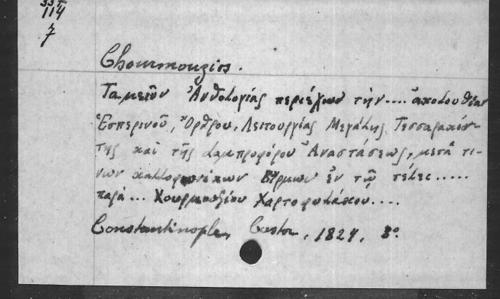 337
114
7
Chourmouzios.
Ταμεῖον Ἀνθολογίας περιέχων τὴν.... ἀκολουθίαν
Ἑσπερινοῦ, Ὄρθρου, Λειτουργίας Μεγάλης Τεσσαρακόσ-
τῆς καὶ τῆς Λαμπροφόρου Ἀναστάσεως, μετά τι-
νων καλλοφωνικων Εἱρμων ἐν τῷ τέλει.....
παρὰ... Χουρμουζίου Χαρτοφύλακου....
Constantinople, Castor, 1824, 8º.